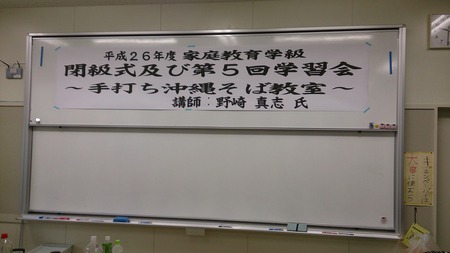 平成26年度 家庭教育学級
閉級式及び第5回学習会
～手打ち沖縄そば教室～
講師：野崎 真志 氏
大事に使おう